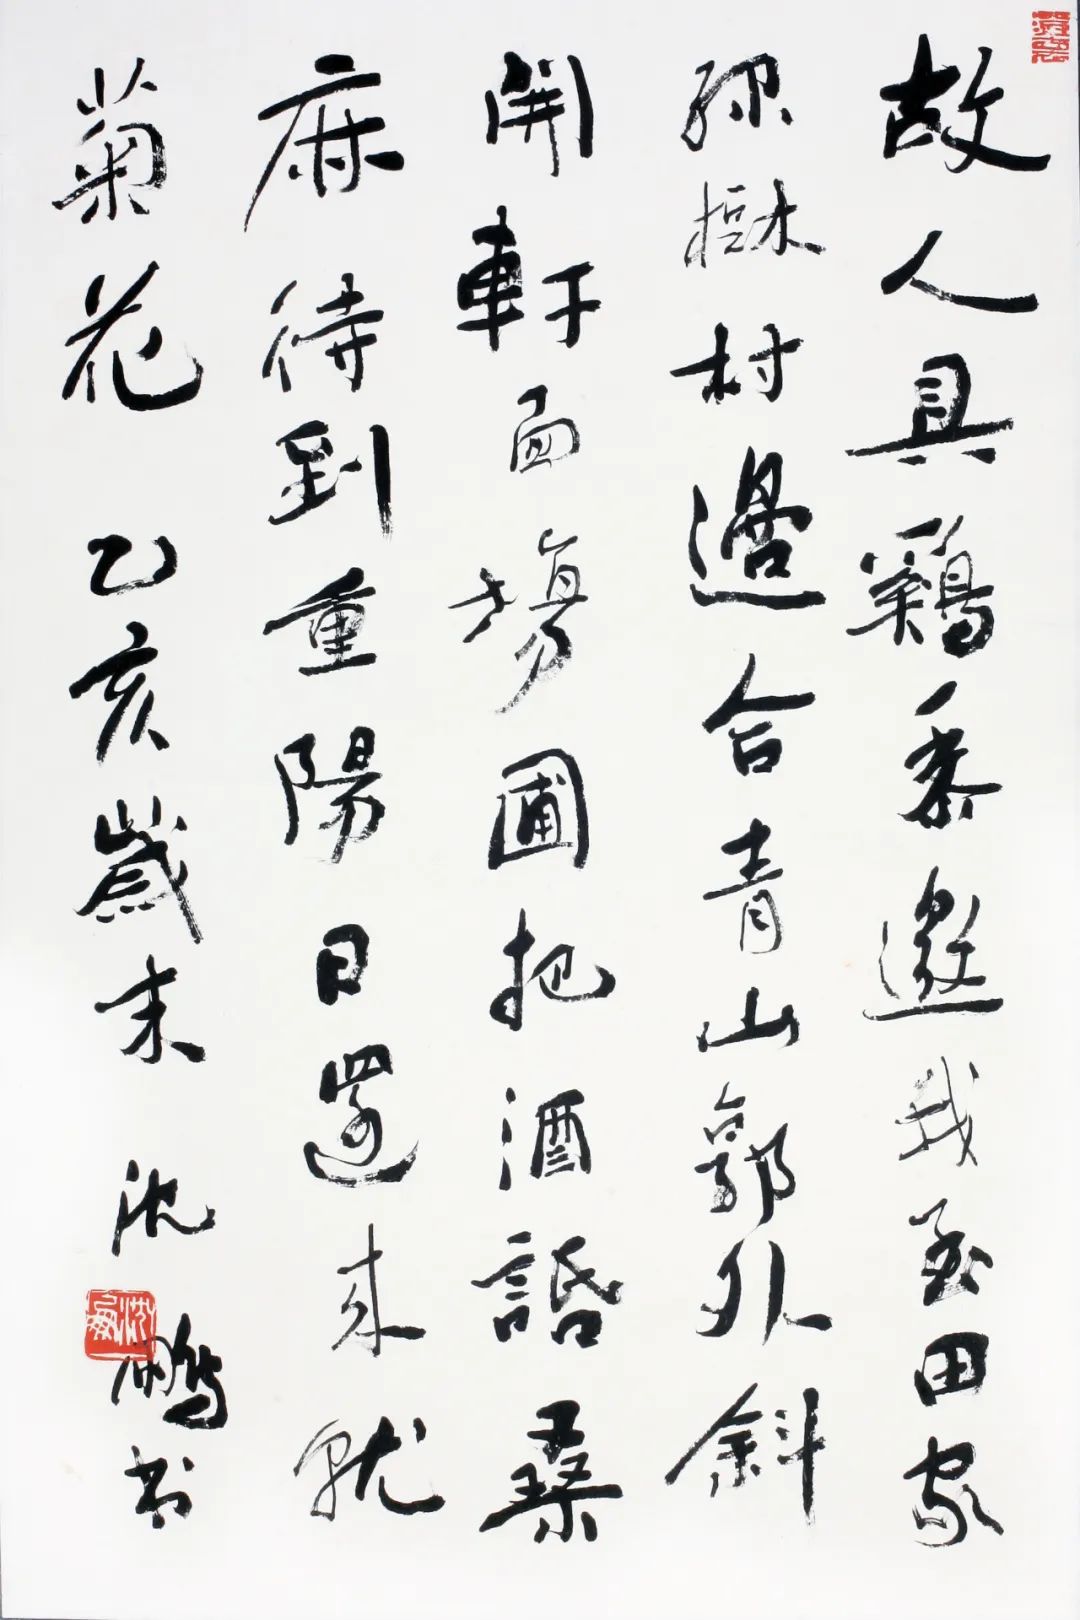 故人具鷄黍邀我至田家
緑樹村邊合青山郭外斜
開軒面場圃把酒話桑
麻待到重陽日還来就
菊花 乙亥歲末 沈鵬书
沈鵬